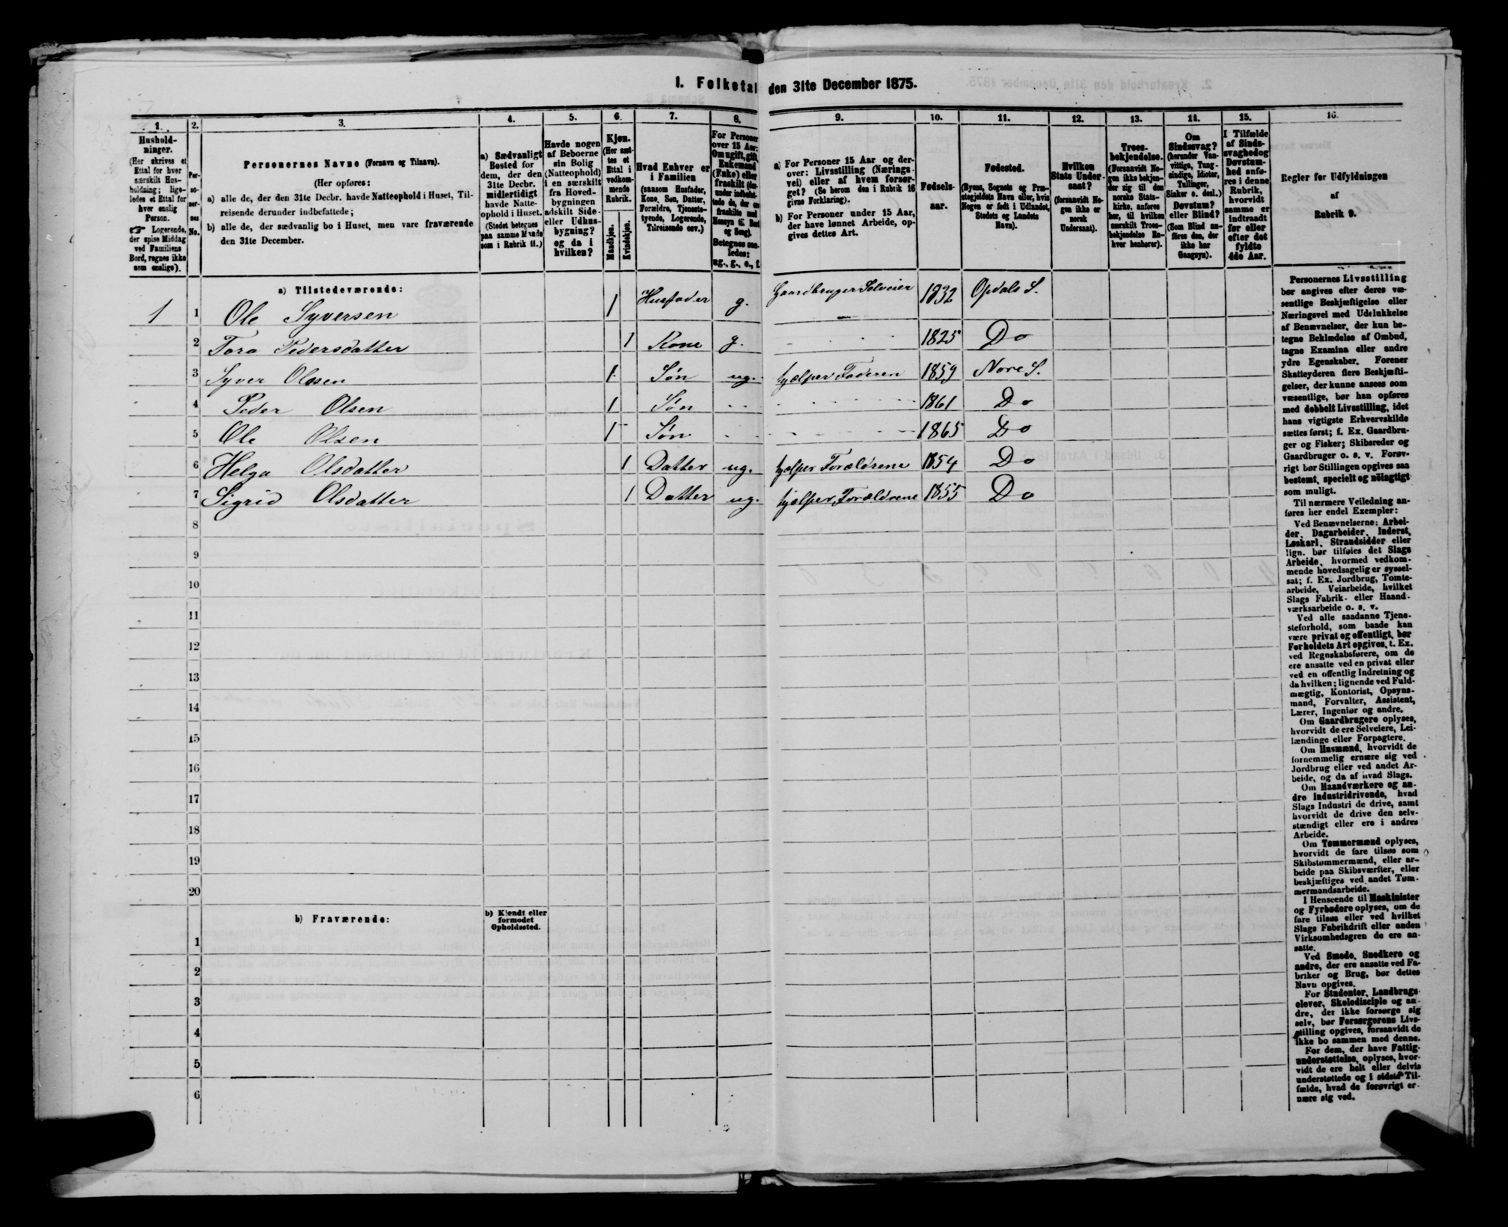 1. Folketal den 31te December 1875.
1. 2. 3. 4. 5. 6. 7. 8. 9. 10. 11. 12. 13. 14. 15. 16.
Hushold-
ninger.
(Her skrives et
Ettal for hver
særskilt Hus-
holdning; lige-
ledes et Ettal for
hver enslig
Person.
☞ Logerende,
der spise Middag
ved Familiens
Bord, regnes ikke
som enslige).
Per-
so-
ner-
nes
No.
Personernes Navne (Fornavn og Tilnavn).
(Her opføres:
a) alle de, der den 31te Decbr. havde Natteophold i Huset, Til-
reisende derunder indbefattede;
b) alle de, der sædvanlig bo i Huset, men vare fraværende
den 31te December.
a) Sædvanligt
Bosted for
dem, der den
31te Decbr.
midlertidigt
havde Natte-
ophold i Huset.
(Stedet betegnes
paa samme Maade
som i Rubrik 11.)
Havde nogen
af Beboerne
sin Bolig
(Natteophold)
i en særskilt
fra Hoved-
bygningen
adskilt Side-
eller Udhus-
bygning?
og da i
hvilken?
Kjøn.
(Her sæt-
tes et
Ettal i
vedkom-
mende
Rubrik.
Mandkjøn.
Kvindekjøn.
Hvad Enhver er
i Familien
(saasom Husfader,
Kone, Søn, Datter,
Forældre, Tjeneste-
tyende, Logerende,
Tilreisende osv.)
For Personer
over 15 Aar:
Om ugift, gift,
Enkemand
(Enke) eller
fraskilt
Betegnes saa-
ledes:
ug., g., e., f.
a) For Personer 15 Aar og der-
over: Livsstilling (Nærings-
vei) eller af hvem forsør-
get? (Se herom den i Rubrik 16
givne Forklaring).
b) For Personer under 15 Aar,
der have lønnet Arbeide, op-
gives dettes Art.
Fødsels-
aar.
Fødested.
(Byens, Sognets og Præ-
stegjeldets Navn eller, hvis
Nogen er født i Udlandet,
Stedets og Landets
Navn).
Hvilken
Stats Under-
saat?
(forsaavidt No-
gen ikke er
norsk
Undersaat).
Troes-
bekjendelse.
(Forsaavidt No-
gen ikke bekjen-
der sig til den
norske Stats-
kirke, anføres
her, til hvilken
særskilt Troes-
bekjendelse En-
hver henhører).
Om
Sindssvag?
(herunder Van-
vittige, Tung-
sindige, Idioter,
Tullinger,
Sinker o. desl.)
Døvstum?
eller Blind?
(Som Blind an-
føres den, der
ikke har
Gangsyn).
I Tilfælde
af Sinds-
svaghed og
Døvstum-
hed anfø-
res i denne
Rubrik,
hvorvidt
samme er
indtraadt
før eller
efter det
fyldte
4de Aar.
Regler for Udfyldningen
af
Rubrik 9.
a) Tilstedeværende:
1 1 Ole Syversen 1 Husfader g. Gaardbruger Selveier 1832 Opdals S.
2 Tora Pedersdatter 1 Kone g. 1825 Do
3 Syver Olssen 1 Søn ug. hjælper Faderen 1859 Nore S.
4 Peder Olsen 1 Søn 1861 Do
5 Ole Olsen 1 Søn 1865 Do
6 Helga Olsdatter 1 Datter ug. hjelper Forældrene 1854 Do
7 Sigrid Olsdatter 1 Datter ug. hjelper Forældrene 1855 Do
8
9
10
11
12
13
14
15
16
17
18
19
20
b) Fraværende:
b) Kjendt eller
formodet
Opholdssted.
1
2
3
4
5
6
Personernes Livsstilling
bør angives efter deres væ-
sentlige Beskjæftigelse eller
Næringsvei med Udelukkelse
af Benævnelser, der kun be-
tegne Beklædelse af Ombud,
tagne Examina eller andre
ydre Egenskaber. Forener
Skatteyderen flere Beskjæfti-
gelser, der kunne ansees som
væsentlige, bør han opføres
med dobbelt Livsstilling, idet
hans vigtigste Erhvervskilde
sættes først; f. Ex. Gaardbru-
ger og Fisker; Skibsreder og
Gaardbruger o. s. v. Forøv-
rigt bør Stillingen opgives saa
bestemt, specielt og nøiagtigt
som muligt.
Til nærmere Veiledning an-
føres her endel Exempler:
Ved Benævnelserne: Arbei-
der, Dagarbeider, Inderst,
Løskarl, Strandsidder eller
lign. bør tilføies det Slags
Arbeide, hvormed vedkom-
mende hovedsagelig er syssel-
sat; f. Ex. Jordbrug, Tomte-
arbeide, Veiarbeide, hvilket
Slags Fabrik- eller Haand-
værksarbeide o. s. v.
Ved alle saadanne Tjene-
steforhold, som baade kan
være privat og offentligt, bør
Forholdets Art opgives, t. Ex.
ved Regnskabsførere, om de
ere ansatte ved en privat eller
ved en offentlig Indretning og
da hvilken; lignende ved Fuld-
mægtig, Kontorist, Opsyns-
mand, Forvalter, Assistent,
Lærer, Ingeniør og andre.
Om Gaardbrugere oplyses,
hvorvidt de ere Selveiere, Lei-
lændinge eller Forpagtere.
Om Husmænd, hvorvidt de
fornemmelig ernære sig ved
Jordbrug eller ved andet Ar-
beide, og da af hvad Slags.
Om Haandværkere og an-
dre Industridrivende, hvad
Slags Industri de drive, samt
hvorvidt de drive den selv-
stændigt eller ere i andres
Arbeide.
Om Tømmermænd oplyses,
hvorvidt de fare tilsøs som
Skibstømmermænd, eller ar-
beide paa Skibsværfter, eller
beskjæftiges ved andet Tøm-
mermandsarbeide.
I Henseende til Maskinister
og Fyrbødere oplyses, om de
fare tilsøs eller ved hvilket
Slags Fabrikdrift eller anden
Virksomhedsgren de ere an-
satte.
Ved Smede, Snedkere og
andre, der ere ansatte ved Fa-
briker og Brug, bør dettes
Navn opgives.
For Studenter, Landbrugs-
elever, Skoledisciple og an-
dre, der ikke forsørge sig
selv, bør Forsørgerens Livs-
stilling opgives, forsaavidt de
ikke bo sammen med denne.
For dem, der have Fattig-
understøttelse, oplyses, hvor-
vidt de ere helt eller delvis
understøttede og i sidste Til-
fælde, hvad de forøvrigt er-
nære sig ved.